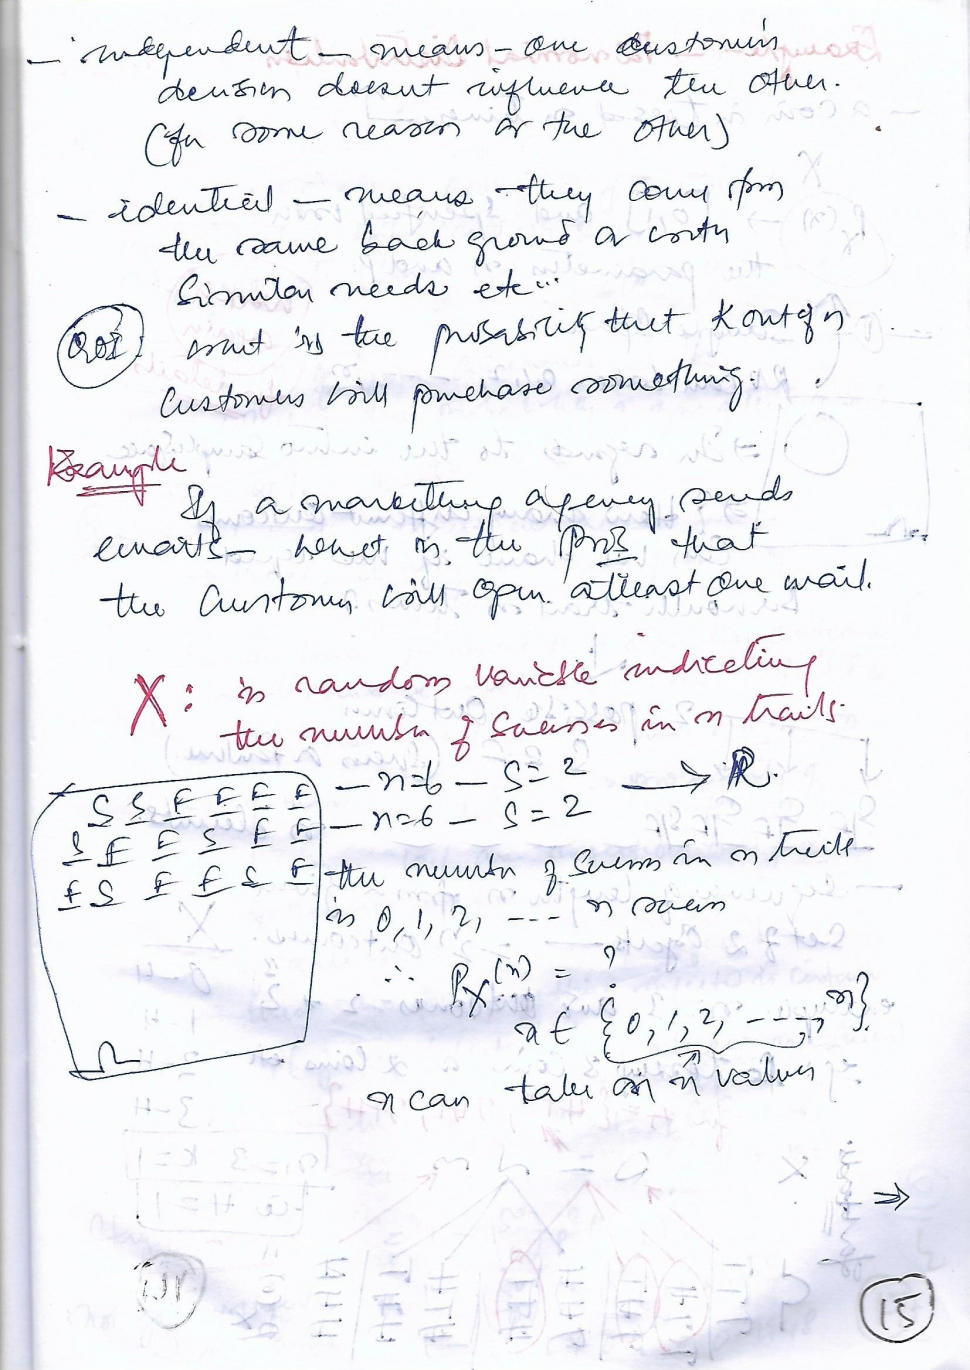 - independent - means - one customers
decision doesnt influence the other.
(for some reason or the other)
- identical - means they come from
the same back ground or with
Similar needs etc...
QOI: what is the probability that K out of n
Customers will purchase something.
Example
If a marketting agency sends
emails - what is the prob that
the Customer will open atleast one mail.
X: is random variable indicating
the number of Success in n trails.
S S F F F F - n=6 - S=2 → R.
S F F S F F - n=6 - S=2
F S F F S F the number of Success in n trails
is 0, 1, 2, ---- n succes
∴ Px(x) = ?
x ∈ {0, 1, 2, ----, n}.
Ω
x can take on n values
⇒
15